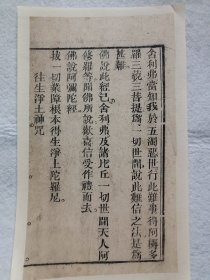 舍利弗當知我於五濁惡世行此難事得阿耨多
羅三藐三菩提爲一切世間說此難信之法是爲
甚難
佛說此經已舍利弗及諸比丘一切世間天人阿
修羅等聞佛所說歡喜信受作禮而去
佛說阿彌陀經
拔一切業障根本得生淨土陀羅尼
往生淨土神咒